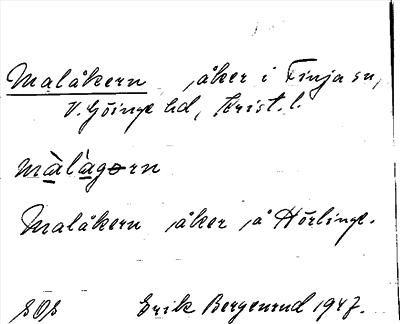 Malåkern , åker i Finja sn,
V. Göinge hd, Krist. l.
màlàgørn
Malåkern , åker å Hörlinge.
SOS Erik Bergenrud 1947.